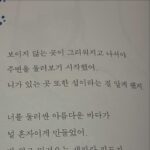 보이지 않는 곳이 그리워지고 나서야
주변을 둘러보기 시작했어.
니가 있는 곳 또한 섬이라는 걸 알게 됐지
너를 둘러싼 아름다운 바다가
널 혼자이게 만들었어.